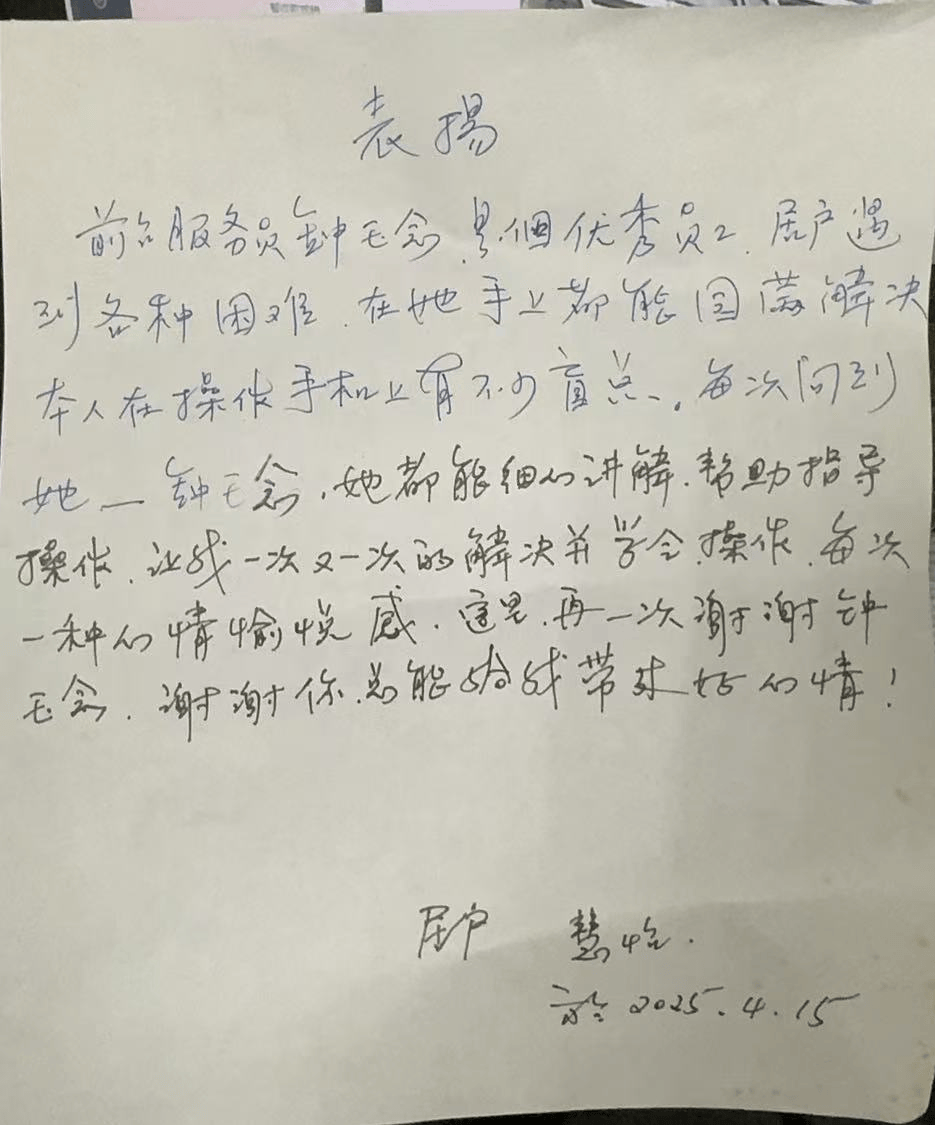 表揚
前台服务员钟玉念,是個优秀员工.居户遇
到各种困难.在她手上都能圆满解决
本人在操作手机上有不少盲点、。每次问到
她一钟玉念,她都能细心讲解.帮助指导
操作.让我一次又一次的解决并学会操作.每次
一种心情愉悦感.这里.再一次谢谢钟
玉念.谢谢你.总能给我带来好心情!
居户 慧怡.
於2025.4.15